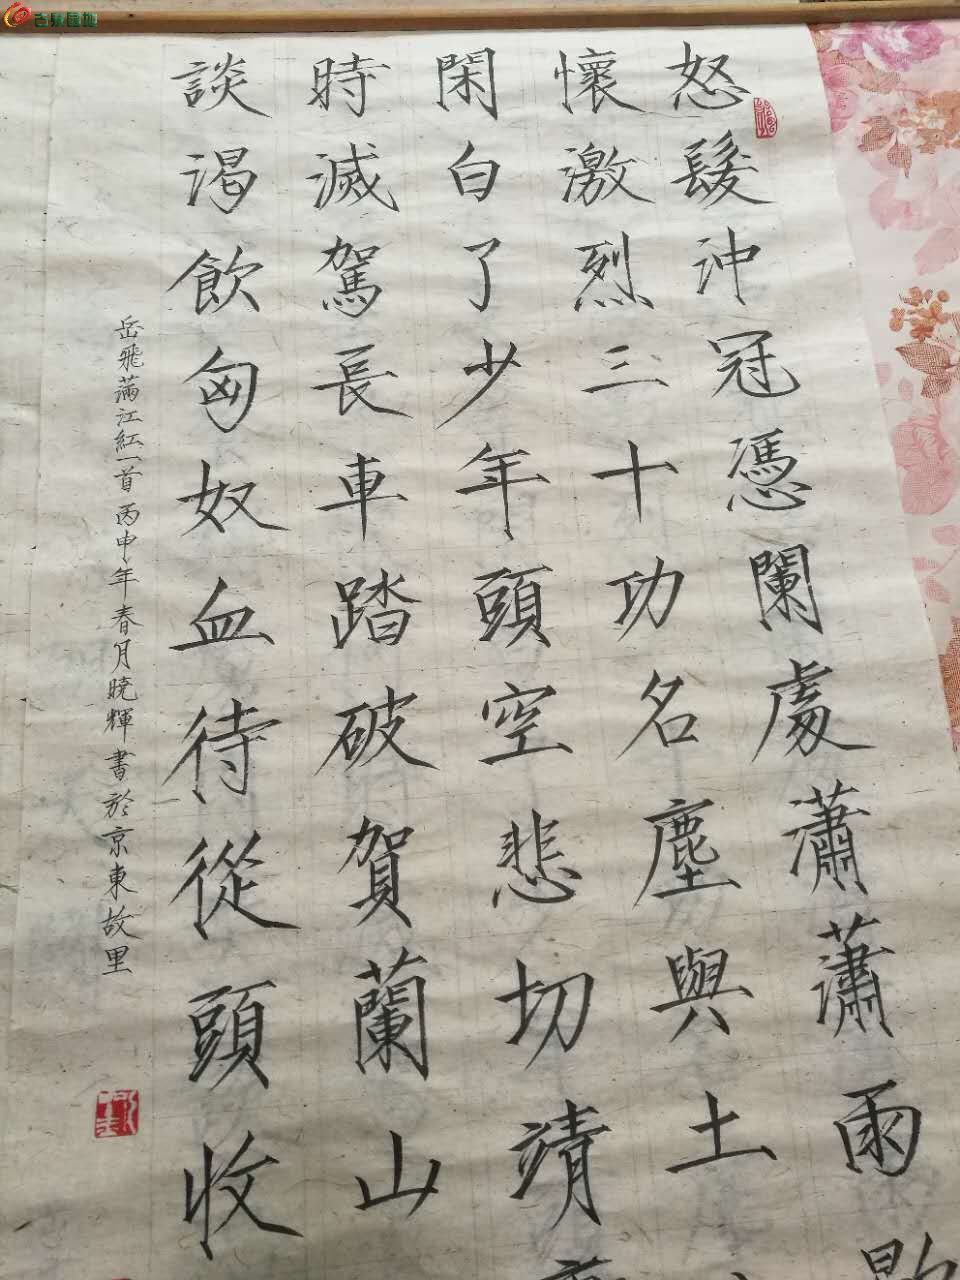 怒髮沖冠憑闌處瀟瀟雨歇
懷激烈三十功名塵與土
閑白了少年頭空悲切靖
時滅駕長車踏破賀蘭山
談渴飲匈奴血待從頭收
岳飛滿江紅一首丙申年春月曉輝書於京東故里